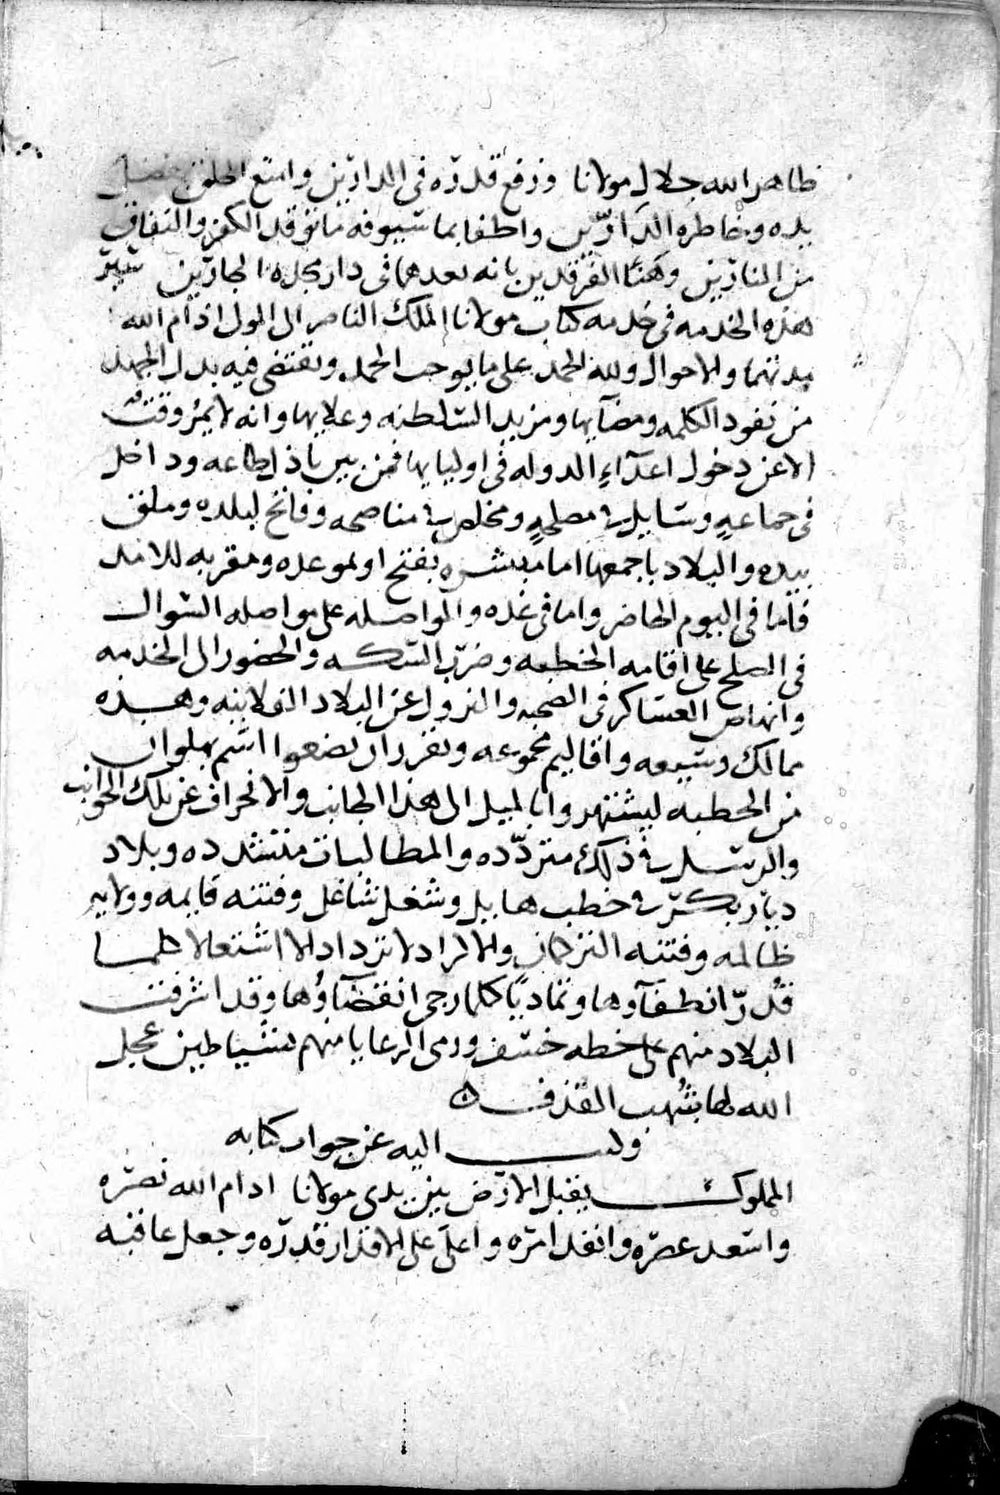 ظاهر الله جلال مولانا ورفع قدره فى الدارين وامتع الخلق بفضل
يده وخاطره الدارّين واطفا بما سيوفه ما توقد الكفر والنفاق
من النارين وهنّا الفرقدين بانه بعدهما فى دار مجده الجارين
هذه الخدمه فى خدمه كتاب مولانا الملك الناصر الى المولى ادام الله
مدتهما والاحوال ولله الحمد على ما يوجب الحمد ويقتضى فيه بذل الجهد
من نفوذ الكلمه ومضايها ومزيد السلطنه وعلايها وانه لا يمرّ وقت
الا عن دخول اعدآء الدوله فى اوليايها فمن بين باذل طاعه وداخل
فى جماعهٍ وسايل فى مصلحهٍ ومخلص فى مناصحه وفاتح لبلده وملق
بيده والبلاد باجمعها اما مبشره بفتح او لموعده ومقربه للامد
فاما فى اليوم الحاضر واما فى غده والمواصله على مواصله السوال
فى الصلح على اقامه الخطبه وضرب السكه والحضور الى الخدمه
وانهاض العساكر فى الصحبه والنزول عن البلاد الفلانيه وهذه
ممالك وسيعه واقاليم مجموعه وتقرر ان يضعوا اسم بهلوان
من الخطبه ليشتهروا بالميل الى هذا الجانب والانحراف عن تلك الجوانب
والرسل فى ذلك متردّده والمطالبات متشدده وبلاد
ديار بكر فى خطب هايل وشغل شاغل وفتنه قايمه وولايه
ظالمه وفتنه التركمان والاكراد لا تزداد الا اشتعالا كلما
قُدّر انطفآوها وتماديًا كلما رجى انقضآؤها وقد اشرفت
البلاد منهم على خطه خسف ورمى الرعايا منهم بشياطين عجل
الله لها بشُهب القذف ٥
وكتب اليه عن جواب كتابه
المملوك يقبل الارض بين يدى مولانا ادام الله نصره
واسعد عصره وانفذ امره واعلى على الاقدار قدره وجعل عاقبه